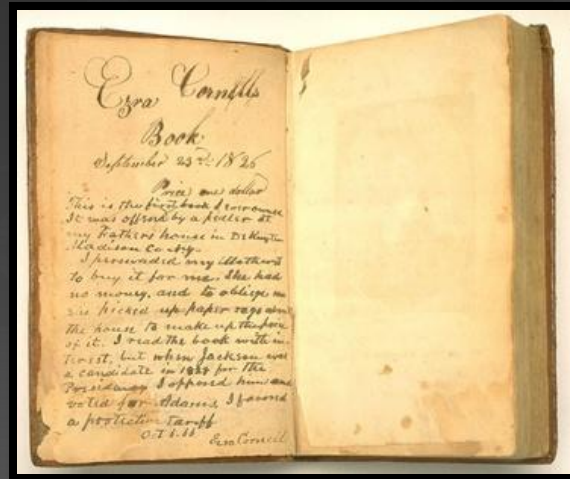 Ezra Cornell's
Book
September 23rd 1826
Price one dollar
This is the first book I ever owned
It was offered by a pedler at
my Fathers house in DeRuyter
Madison Co NY.
I persuaded my Mother
to buy it for me. She had
no money, and to oblige me
she picked up paper rags
the house to make up the price
of it. I read the book with in-
terest, but when Jackson was
a candidate in 1828 for the
Presidency I opposed him and
voted for Adams I favored
a protective tariff
Oct
Ezra Cornell